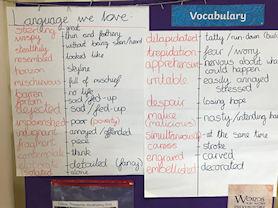 Language we love:
great
wispy thin and feathery
stealthily without being seen/heard
resembled looked like
horizon skyline
mischievous full of mischief
barren no life
forlorn sad/fed-up
sad/fed-up
impoverished poor (poverty)
indignant annoyed/offended
fragment piece
contemplate think
detailed (fancy)
alone
Vocabulary
dilapidated tatty/run-down
trepidation fear/worry
apprehensive nervous about what
could happen
irritable easily annoyed
stressed
despair losing hope
malice
(malicious) nasty/intending harm
simultaneously at the same time
caress stroke
engraved carved
embellished decorated
WORDS